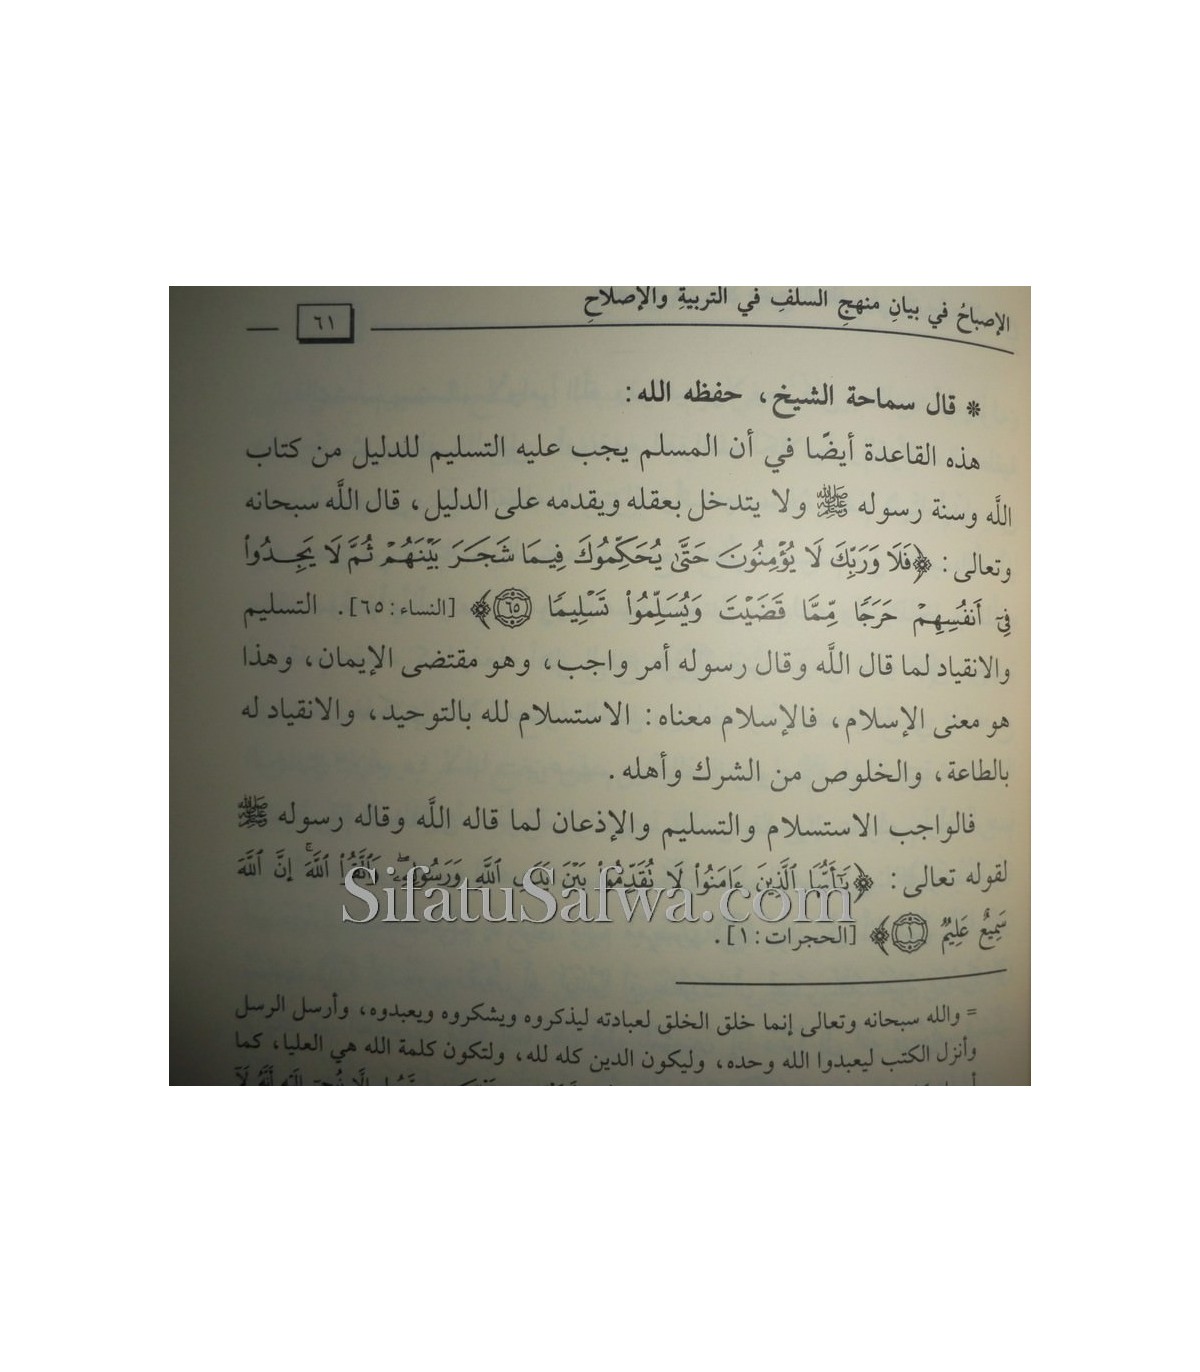 الإصباحُ في بيانِ منهجِ السلفِ في التربيةِ والإصلاحِ
٦١
* قال سماحة الشيخ، حفظه الله:
هذه القاعدة أيضًا في أن المسلم يجب عليه التسليم للدليل من كتاب
اللَّه وسنة رسوله ﷺ ولا يتدخل بعقله ويقدمه على الدليل، قال اللَّه سبحانه
وتعالى: ﴿فَلَا وَرَبِّكَ لَا يُؤْمِنُونَ حَتَّىٰ يُحَكِّمُوكَ فِيمَا شَجَرَ بَيْنَهُمْ ثُمَّ لَا يَجِدُواْ
فِىٓ أَنفُسِهِمْ حَرَجًا مِّمَّا قَضَيْتَ وَيُسَلِّمُواْ تَسْلِيمًا ٦٥﴾ [النساء: ٦٥]. التسليم
والانقياد لما قال اللَّه وقال رسوله أمر واجب، وهو مقتضى الإيمان، وهذا
هو معنى الإسلام، فالإسلام معناه: الاستسلام لله بالتوحيد، والانقياد له
بالطاعة، والخلوص من الشرك وأهله.
فالواجب الاستسلام والتسليم والإذعان لما قاله اللَّه وقاله رسوله ﷺ
لقوله تعالى: ﴿يَٰٓأَيُّهَا ٱلَّذِينَ ءَامَنُواْ لَا تُقَدِّمُواْ بَيْنَ يَدَىِ ٱللَّهِ وَرَسُولِهِۦ ۖ وَٱتَّقُواْ ٱللَّهَ ۚ إِنَّ ٱللَّهَ
سَمِيعٌ عَلِيمٌ ١﴾ [الحجرات: ١].
SifatuSafwa.com
= والله سبحانه وتعالى إنما خلق الخلق لعبادته ليذكروه ويشكروه ويعبدوه، وأرسل الرسل
وأنزل الكتب ليعبدوا الله وحده، وليكون الدين كله لله، ولتكون كلمة الله هي العليا، كما